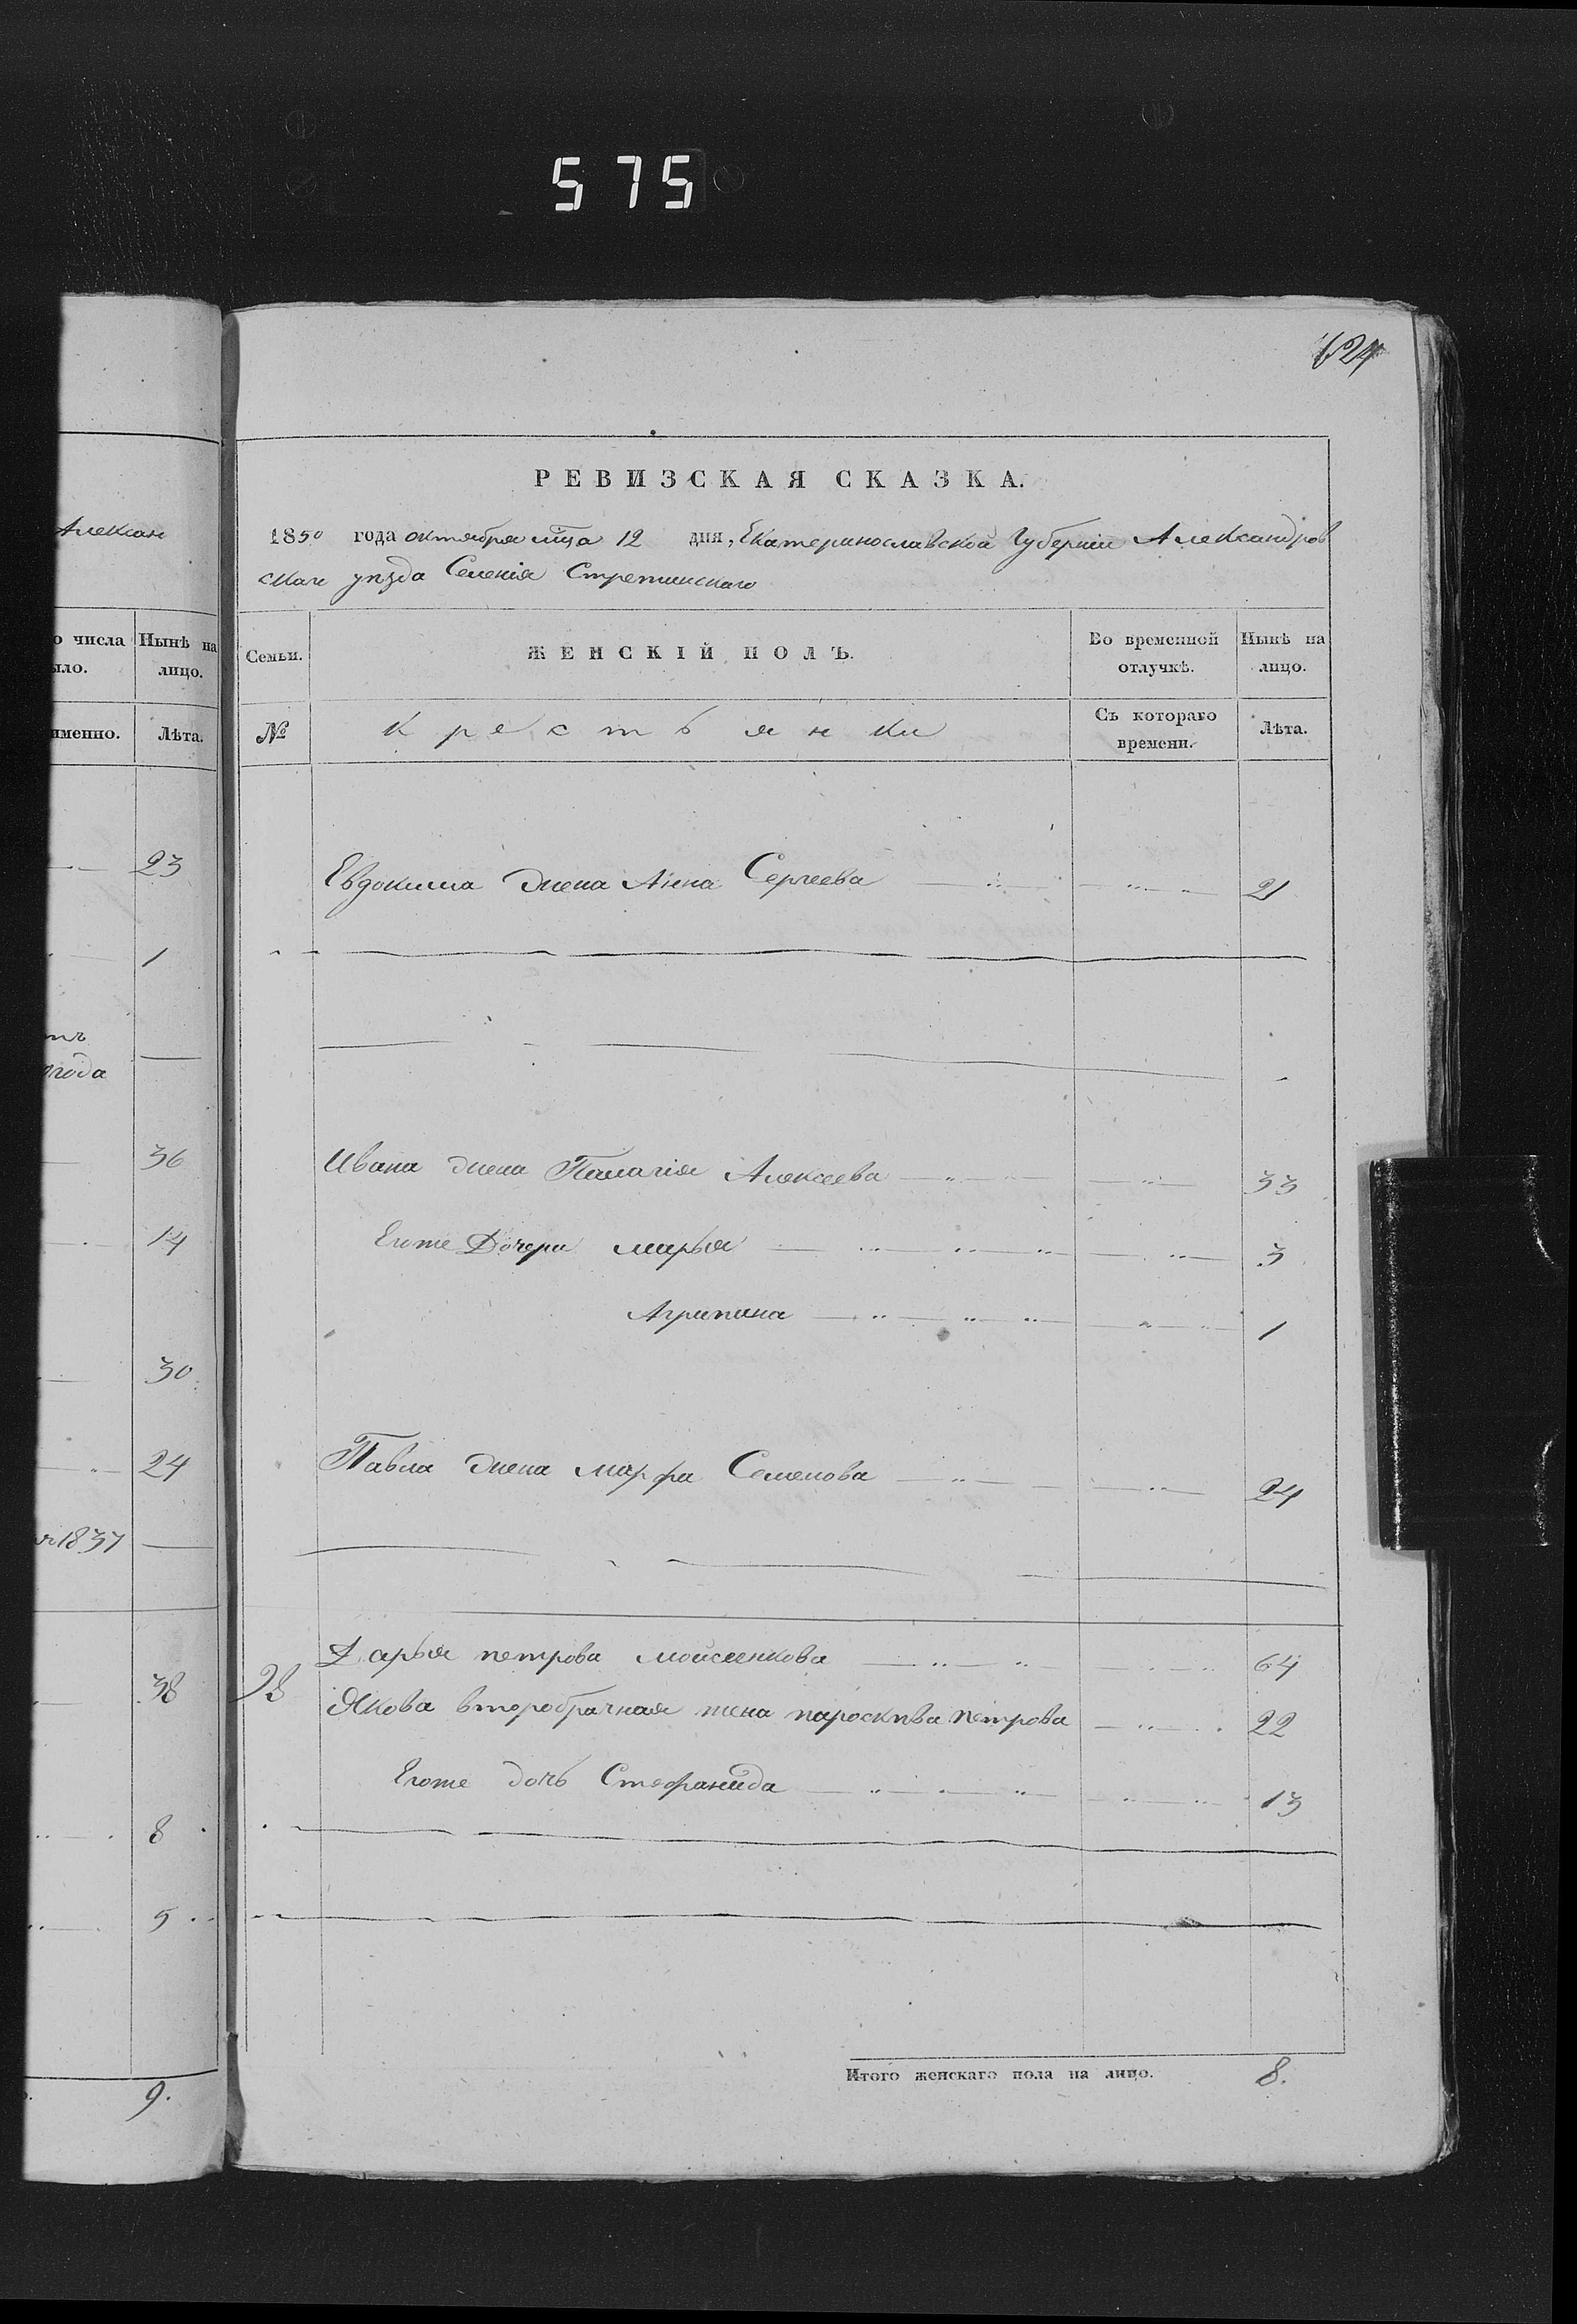 575
624
РЕВИЗСКАЯ СКАЗКА.
1850 года октября мца 12 дня, Екатеринославской Губернии Александров
скаго уезда Селенія Стретинскаго
Алексан
о числа
ыло.
Нынѣ на
лицо.
именно.
Лѣта.
Семьи.
ЖЕНСКІЙ ПОЛЪ.
Во временной
отлучкѣ.
Нынѣ на
лицо.
№
крестьянки
Съ котораго
времени.
Лѣта.
23
Евдокима жена Анна Сергеева 21
1
года
36
Ивана жена Пелагія Алексеева 33
14
Егоже Дочери марья 3
Агрипина 1
30
24
Павла жена марфа Семенова 24
1837
38
Дарья петрова моисеенкова 64
28 Якова второбрачная жена пароскива Петрова 22
Егоже дочь Стефанида 13
8
5
9.
Итого женскаго пола на лицо. 8.